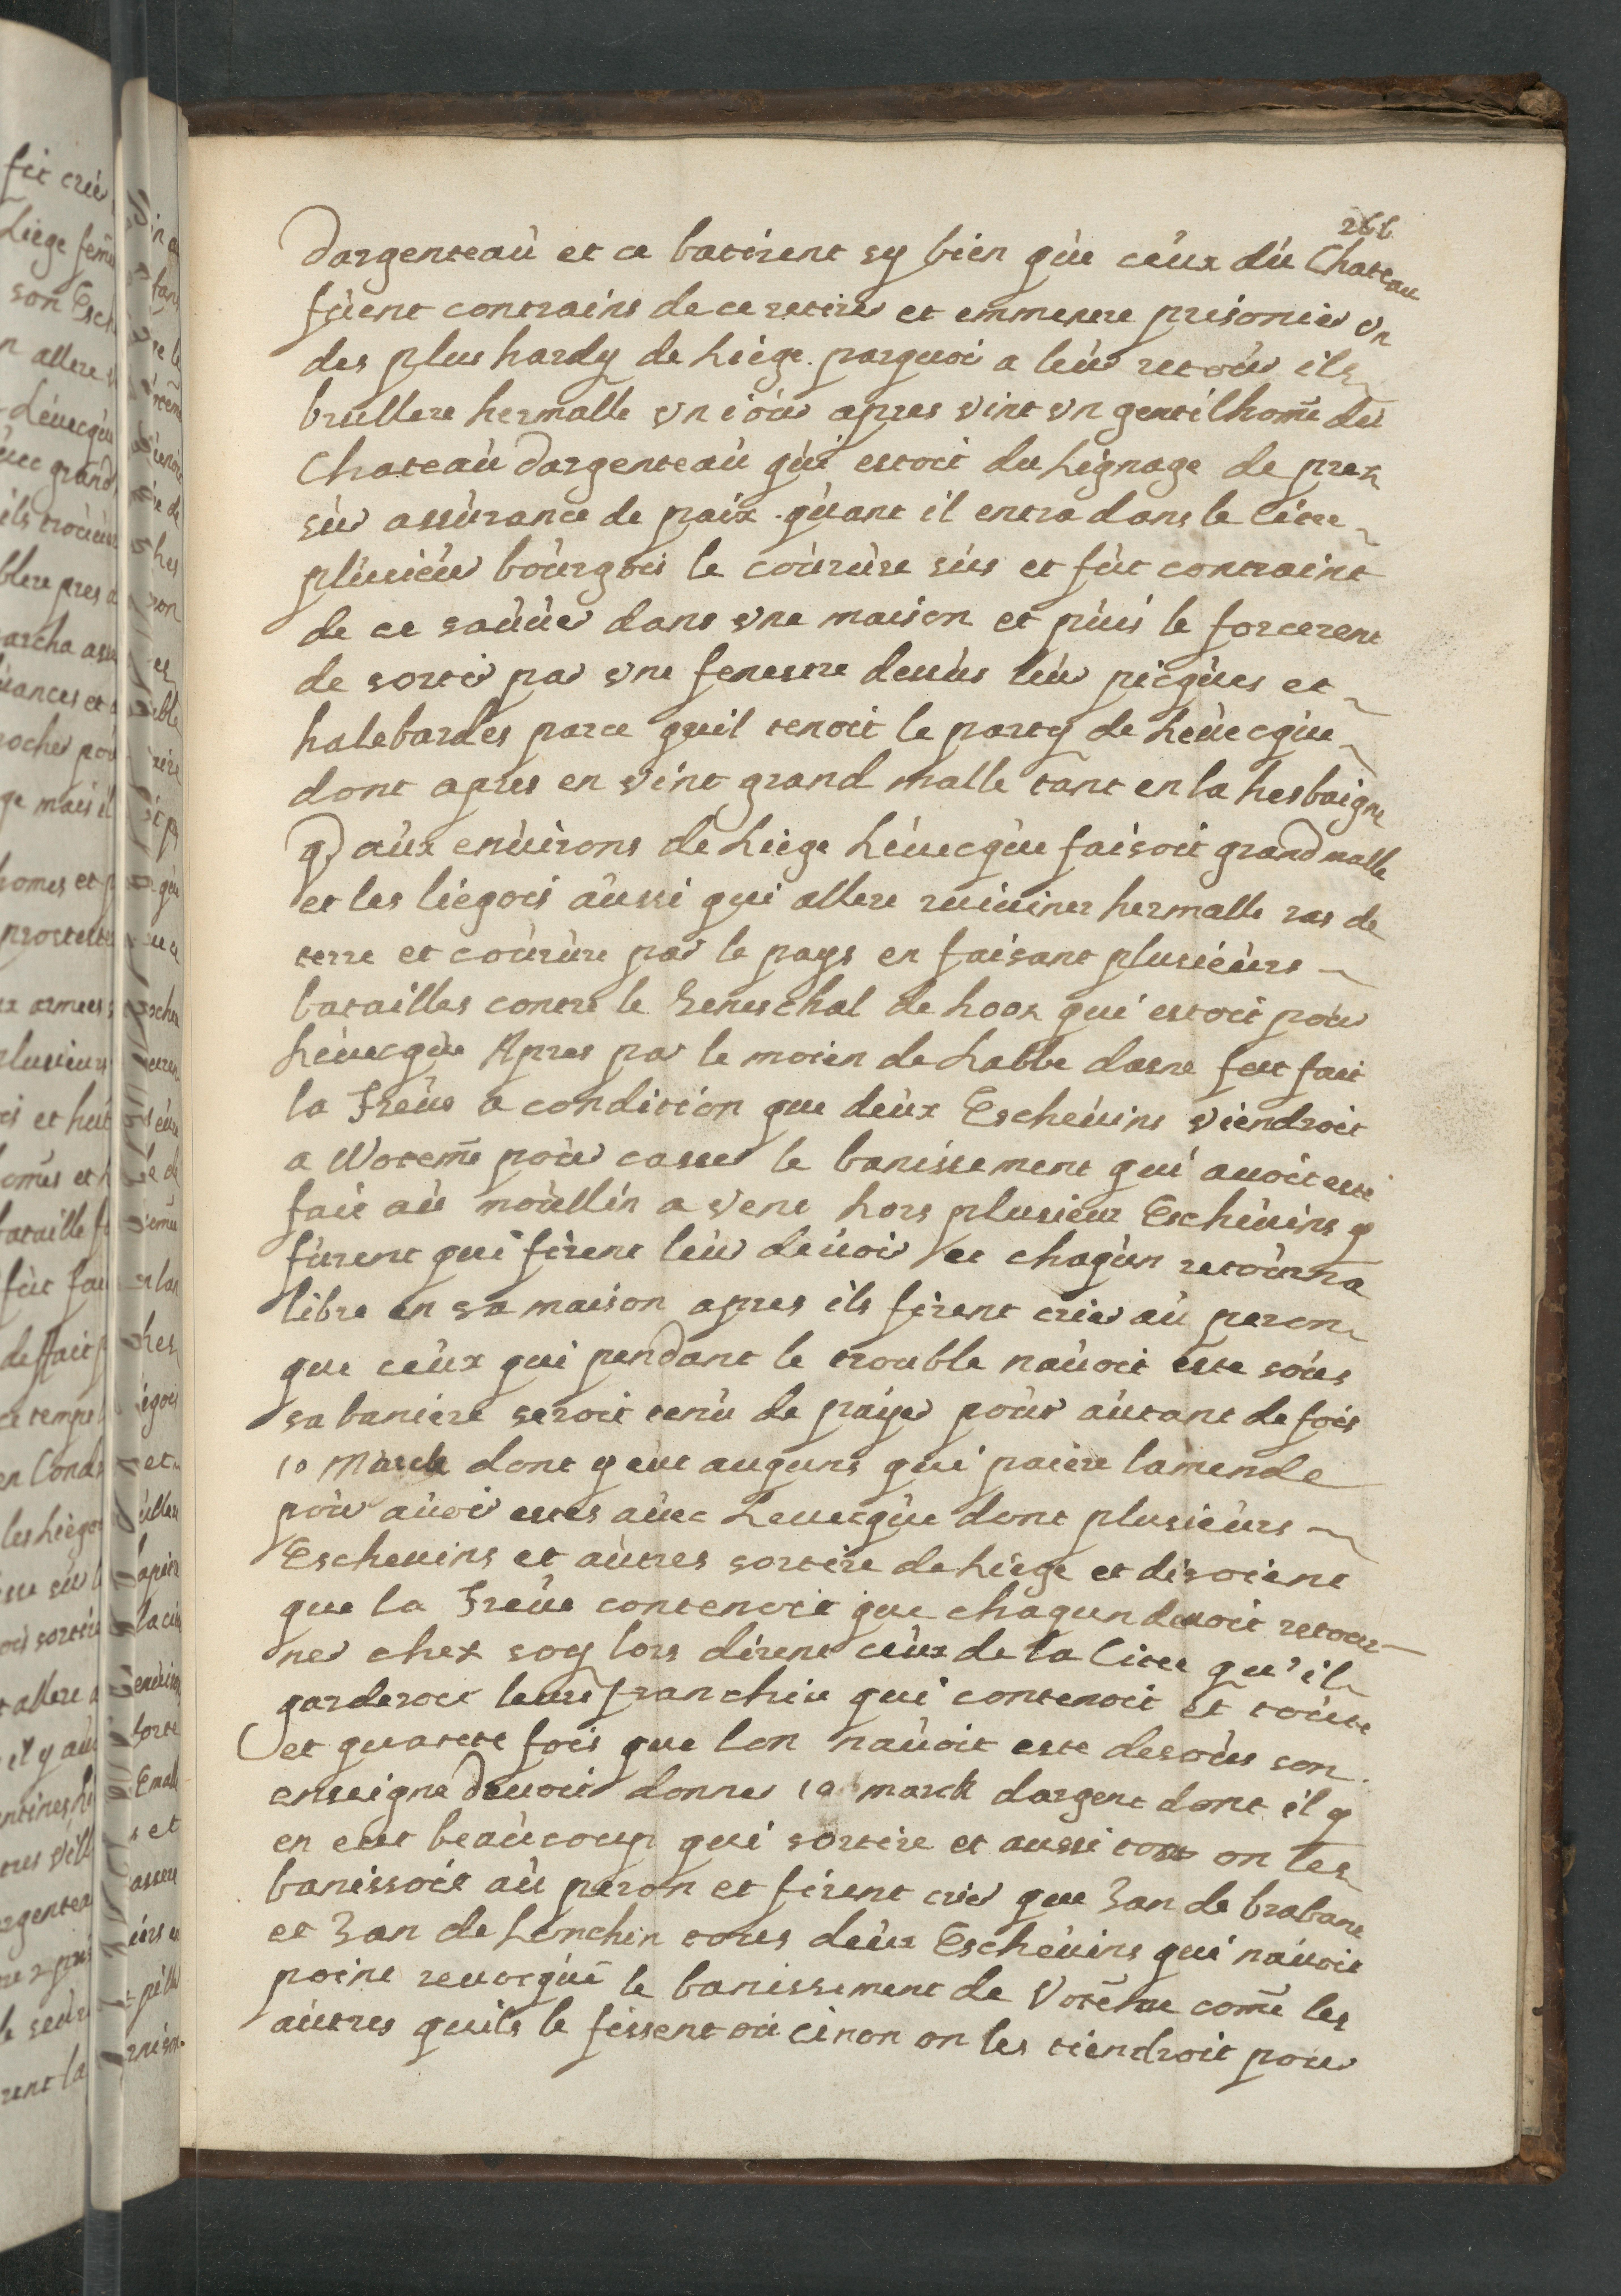 266
dargenteaù et ce batirent sy bien qùe ceùx dù Chateau
fùent contrains de ce retirer et emmenere prisonier vn
des plus hardy de Liege. parquoi a leùr retoùr ils
brullere hermalle vn ioùr apres vint vn gentilhom̃e dù
Chateaù dargenteaù qùi estoit du Lignage de prex
sùr assùrance de paix. qùant il entra dans la Citee
plùsieùr boùrgois le coùrùre sùs et fùt contraint
de ce saùùer dans vne maison et pùis le forcerent
de sortir par vne fenestre dessùs leùr picqùes et
halebardes parce quil tenoit le party de Leùecqùe
dont apres en vint grand malle tant en la hesbaigne
q aùx enùirons de Liege Léuecqùe faisoit grand malle
et les liégois aùssi qui allere ruiuiner hermalle ras de
terre et coùrùre par le pays en faisant plusieùrs
batailles contre le Seneschal de Loox qui estoit poùr
Léuecqùe Apres par le moien de Labbe dasne fut fait
la Treùe a condition que deùx Escheùins viendroit
a Wotem̃ poùr casser le banissement qui auoit esté
fait aù moùllin a vent hors plusieur Escheùins y
fùrent qui firent leùr deùoir et chaqùn retoùrna
libre en sa maison apres ils firent crier aù peron
que ceùx qui pendant le trouble naùoit este soùs
sa baniere seroit tenù de paÿer poùr aùtant de fois
10 March dont y eut auquns qui paiere lamende
poùr aùoir estes aùec Leuecqùe dont plusieùrs
Escheuins et aùtres sortire de Liege et disoient
que la Treùe contenoit que chaqun deuoit retour-
ner chex soy lors dirent ceùx de la Citee qu'il
garderoit leurs franchise qui contenoit et toùtte
et quatte fois que lon naùoit este desoùs son
enseigne deuoit donner 10 marck dargent dont il y
en eut beaùcoup qui sortire et aussi tost on les
banissoit aù peron et firent crier que Jan de brabant
et Jan de Lonchin tous deùx Escheùins qui naùoit
point reuocqùe le banissement de Votem̃e com̃e les
aùtres quils le fissent où cinon on les tiendroit pour